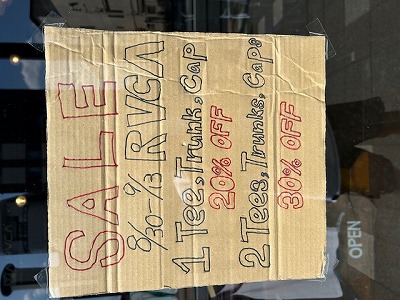 SALE
8/30-9/13 RVCA
1 Tee, Trunk, Cap
20% OFF
2 Tees, Trunks, Caps
30% OFF
OPEN